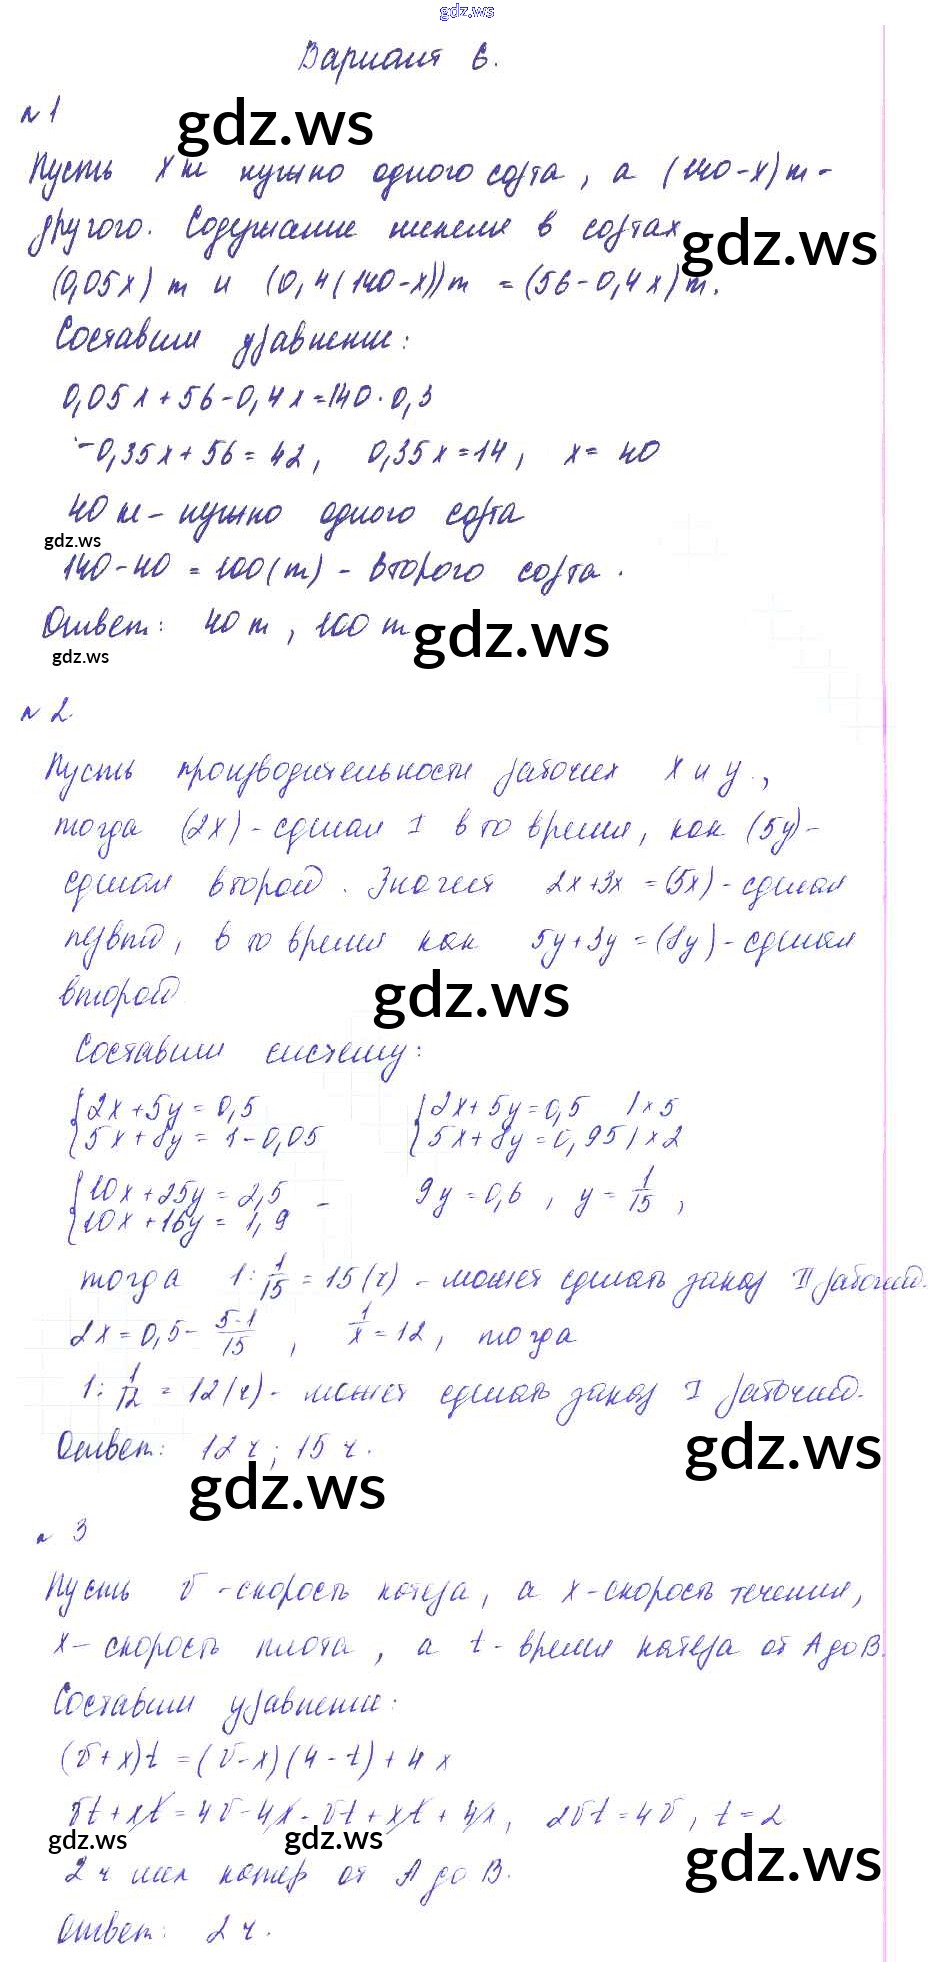 gdz.ws
Вариант 6.
n 1
gdz.ws
Пусть x т нужно одного сорта, а (140-x) т -
другого. Содержание никеля в сортах
gdz.ws
(0,05x) т и (0,4(140-x)) т = (56-0,4x) т.
Составим уравнение:
0,05x+56-0,4x=140·0,3
-0,35x+56=42, 0,35x=14, x=40
40 т - нужно одного сорта
gdz.ws
140-40=100(т) - второго сорта.
Ответ: 40 т, 100 т
gdz.ws
gdz.ws
n 2.
Пусть производительности рабочих x и y,
тогда (2x) - сделал I в то время, как (5y) -
сделал второй. Значит 2x+3x=(5x) - сделал
первый, в то время как 5y+3y=(8y) - сделал
второй
gdz.ws
Составим систему:
{2x+5y=0,5 {2x+5y=0,5 |×5
{5x+8y=1-0,05 {5x+8y=0,95 |×2
{10x+25y=2,5 - 9y=0,6, y=1/15,
{10x+16y=1,9
тогда 1:1/15=15(ч) - может сделать заказ II рабочий.
2x=0,5-5·1/15, 1/x=12, тогда
1:1/12=12(ч) - может сделать заказ I рабочий.
Ответ: 12 ч; 15 ч.
gdz.ws
gdz.ws
n 3
Пусть v - скорость катера, а x - скорость течения,
x - скорость плота, а t - время катера от A до B.
Составим уравнение:
(v+x)t=(v-x)(4-t)+4x
vt+xt=4v-4x-vt+xt+4x, 2vt=4v, t=2
gdz.ws
gdz.ws
gdz.ws
2 ч шел катер от A до B.
Ответ: 2 ч.